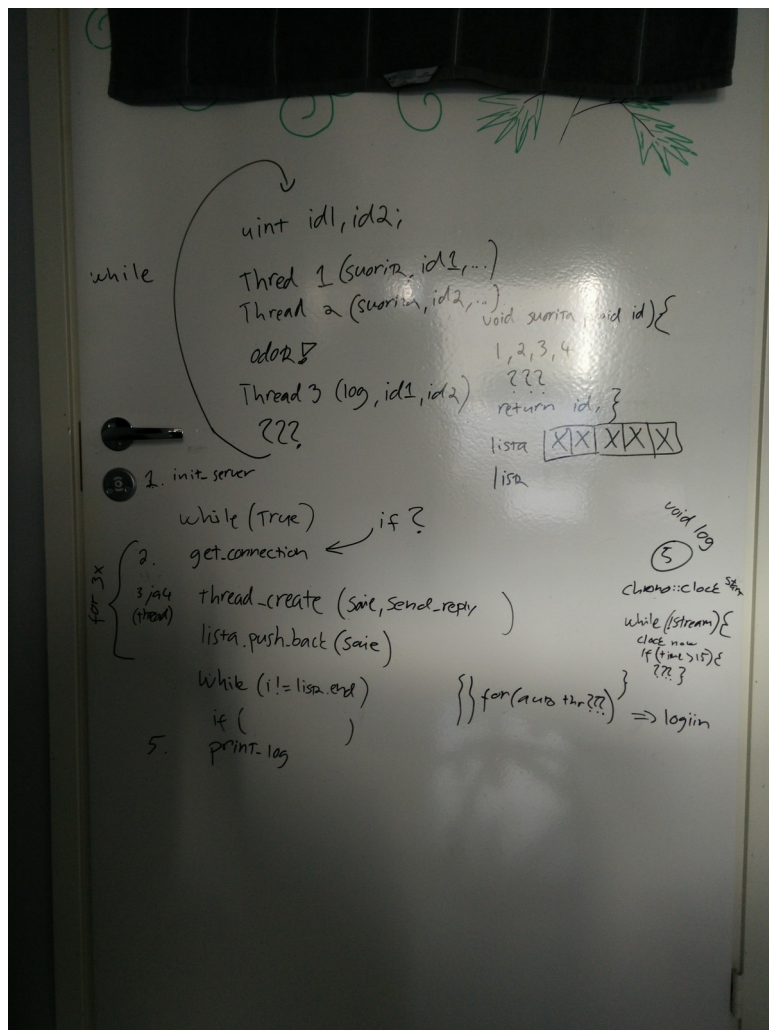 while
uint id1, id2;
Thred 1 (suorita, id1, ...)
Thread 2 (suorita, id2, ...)
odota!
Thread 3 (log, id1, id2)
???
void suorita, void id) {
1, 2, 3, 4
???
return id, }
lista X X X X X
lista
1. init_server
while (True)
if ?
2. get_connection
for 3x
3 ja 4 (thread)
thread_create (Saie, Send_reply )
lista.push_back (Saie)
while (i != lista.end)
if ( )
5. print_log
void log
5
chrono::clock
while (!stream) {
clock now
if (time > 15) {
??? }
}
}} for (auto thr???) => logiin